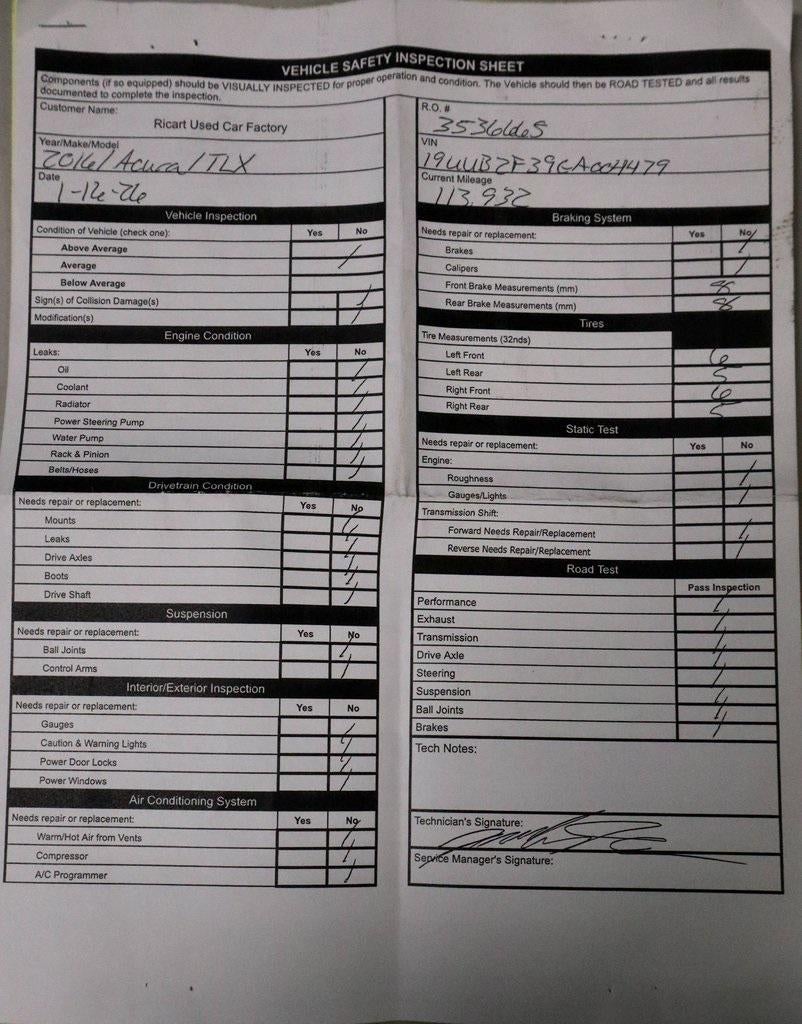 VEHICLE SAFETY INSPECTION SHEET
Components (if so equipped) should be VISUALLY INSPECTED for proper operation and condition. The Vehicle should then be ROAD TESTED and all results
documented to complete the inspection.
Customer Name:
Ricart Used Car Factory
Year/Make/Model
2016/Acura/TLX
Date
1-16-26
Vehicle Inspection
Condition of Vehicle (check one): Yes No
Above Average
Average
Below Average
Sign(s) of Collision Damage(s)
Modification(s)
Engine Condition
Leaks: Yes No
Oil
Coolant
Radiator
Power Steering Pump
Water Pump
Rack & Pinion
Belts/Hoses
Drivetrain Condition
Needs repair or replacement: Yes No
Mounts
Leaks
Drive Axles
Boots
Drive Shaft
Suspension
Needs repair or replacement: Yes No
Ball Joints
Control Arms
Interior/Exterior Inspection
Needs repair or replacement: Yes No
Gauges
Caution & Warning Lights
Power Door Locks
Power Windows
Air Conditioning System
Needs repair or replacement: Yes No
Warm/Hot Air from Vents
Compressor
A/C Programmer
R.O. #
VIN
Current Mileage
113,932
Braking System
Needs repair or replacement: Yes No
Brakes
Calipers
Front Brake Measurements (mm) 8
Rear Brake Measurements (mm) 8
Tires
Tire Measurements (32nds)
Left Front 6
Left Rear 5
Right Front 6
Right Rear 5
Static Test
Needs repair or replacement: Yes No
Engine:
Roughness
Gauges/Lights
Transmission Shift:
Forward Needs Repair/Replacement
Reverse Needs Repair/Replacement
Road Test
Pass Inspection
Performance
Exhaust
Transmission
Drive Axle
Steering
Suspension
Ball Joints
Brakes
Tech Notes:
Technician's Signature:
Service Manager's Signature: